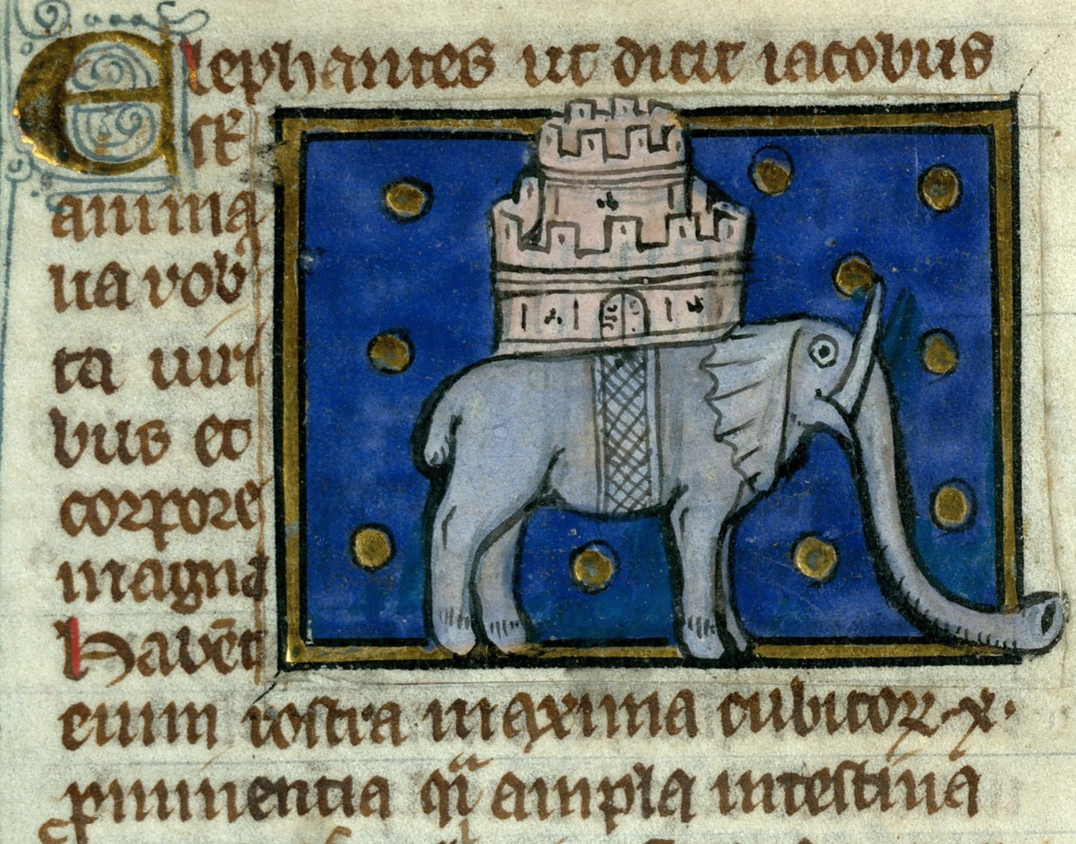 Elephantes ut dicit iacobus
anima
lia rob᾽
ta uiri
bus et
corpore
magna
habēt
enim rostra maxima cubitoꝝ x.
ꝓminentia qͣ ampla intestina